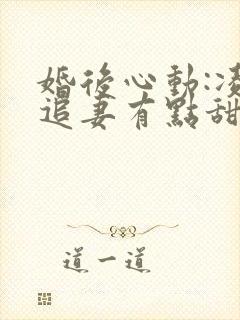 婚後心動:凌
追妻有點甜
道一道